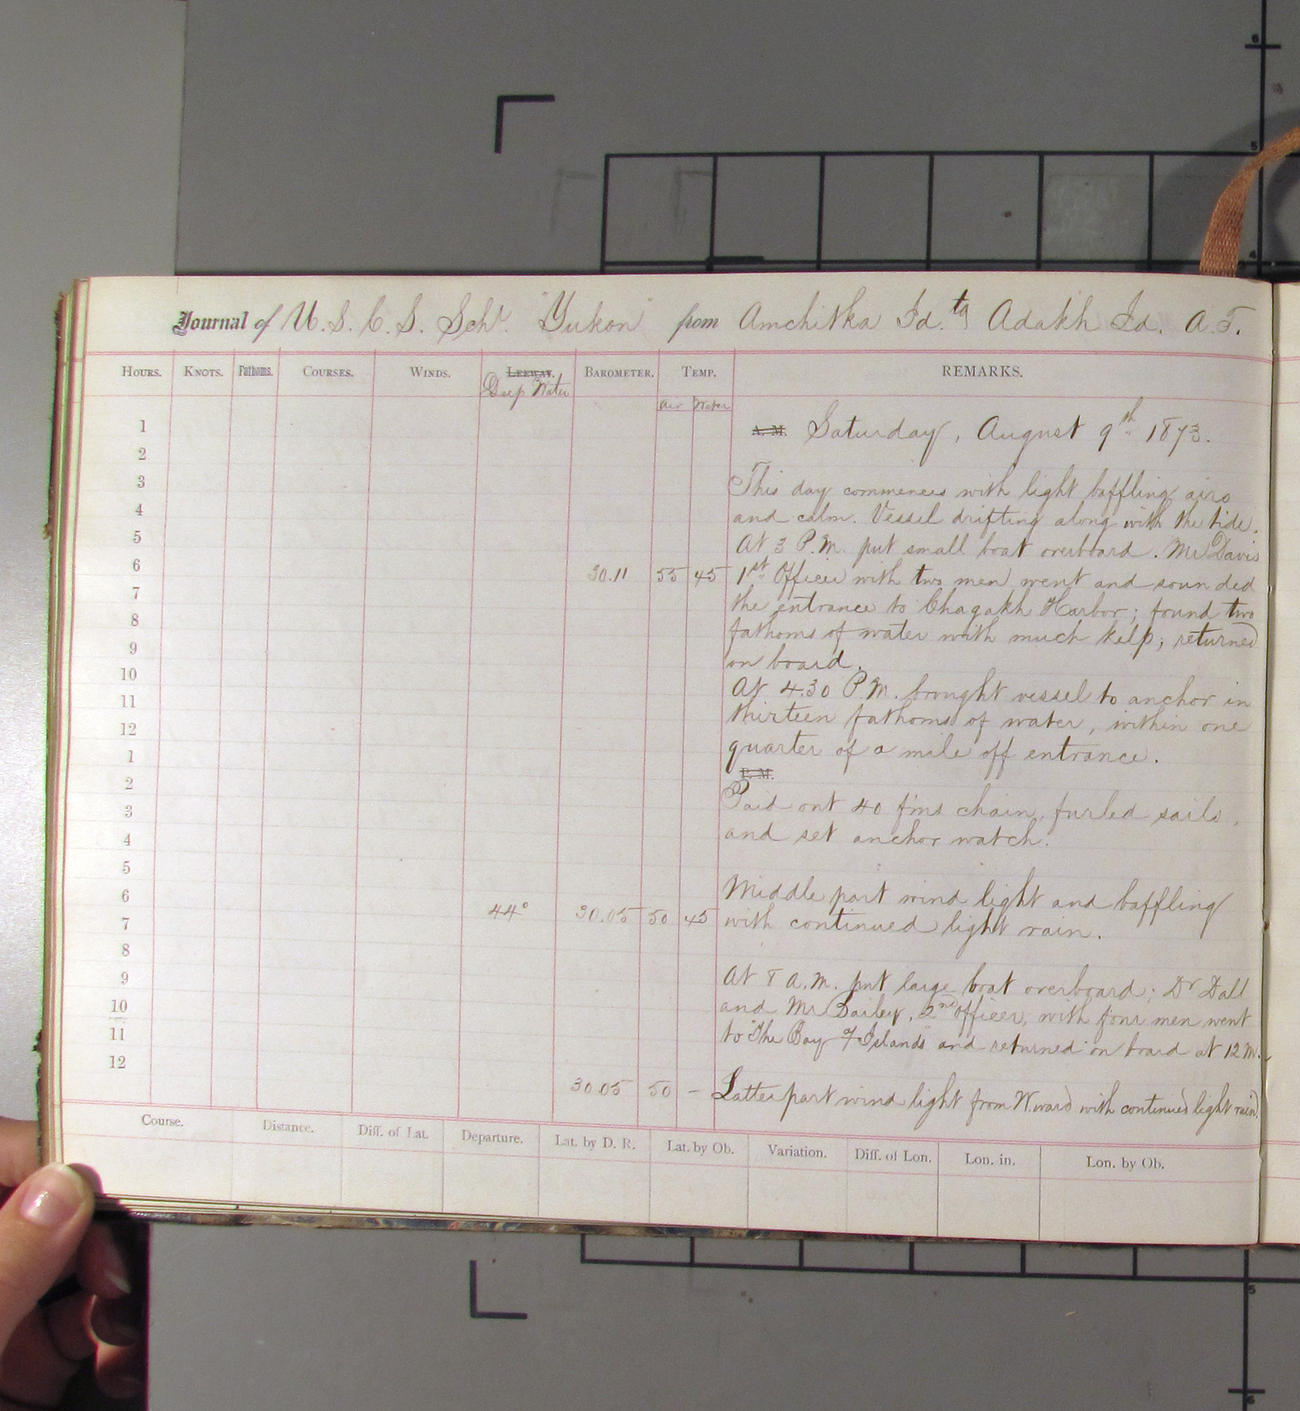 Journal of U. S. C. S. Schr. "Yukon" from Amchitka Id. to Adakh Id. A. T.
HOURS. KNOTS. Fathoms. COURSES. WINDS. LEEWAY. BAROMETER. TEMP. REMARKS.
Deep Water
Air Water
1 A. M. Saturday, August 9th 1873.
2
3 This day commences with light baffling airs
4 and calm. Vessel drifting along with the tide.
5 At 3 P.M. put small boat overboard. Mr Davis
6 30.11 55 45 1st Officer with two men went and sounded
7 the entrance to Chagakh Harbor; found two
8 fathoms of water with much kelp; returned
9 on board.
10 At 4.30 P.M. brought vessel to anchor in
11 thirteen fathoms of water, within one
12 quarter of a mile off entrance.
1 P. M.
2 Paid out 40 fms chain, furled sails,
3 and set anchor watch.
4
5 Middle part wind light and baffling
6 44° 30.05 50 45 with continued light rain.
7
8 At 8 A.M. put large boat overboard; Dr Dall
9 and Mr Bailey, 2nd officer, with four men went
10 to "The Bay of Islands" and returned on board at 12 M.
11
12 30.05 50 – Latter part wind light from W.ward with continued light rain.
Course. Distance. Diff. of Lat. Departure. Lat. by D. R. Lat. by Ob. Variation. Diff. of Lon. Lon. in. Lon. by Ob.
6
5
4
5
6